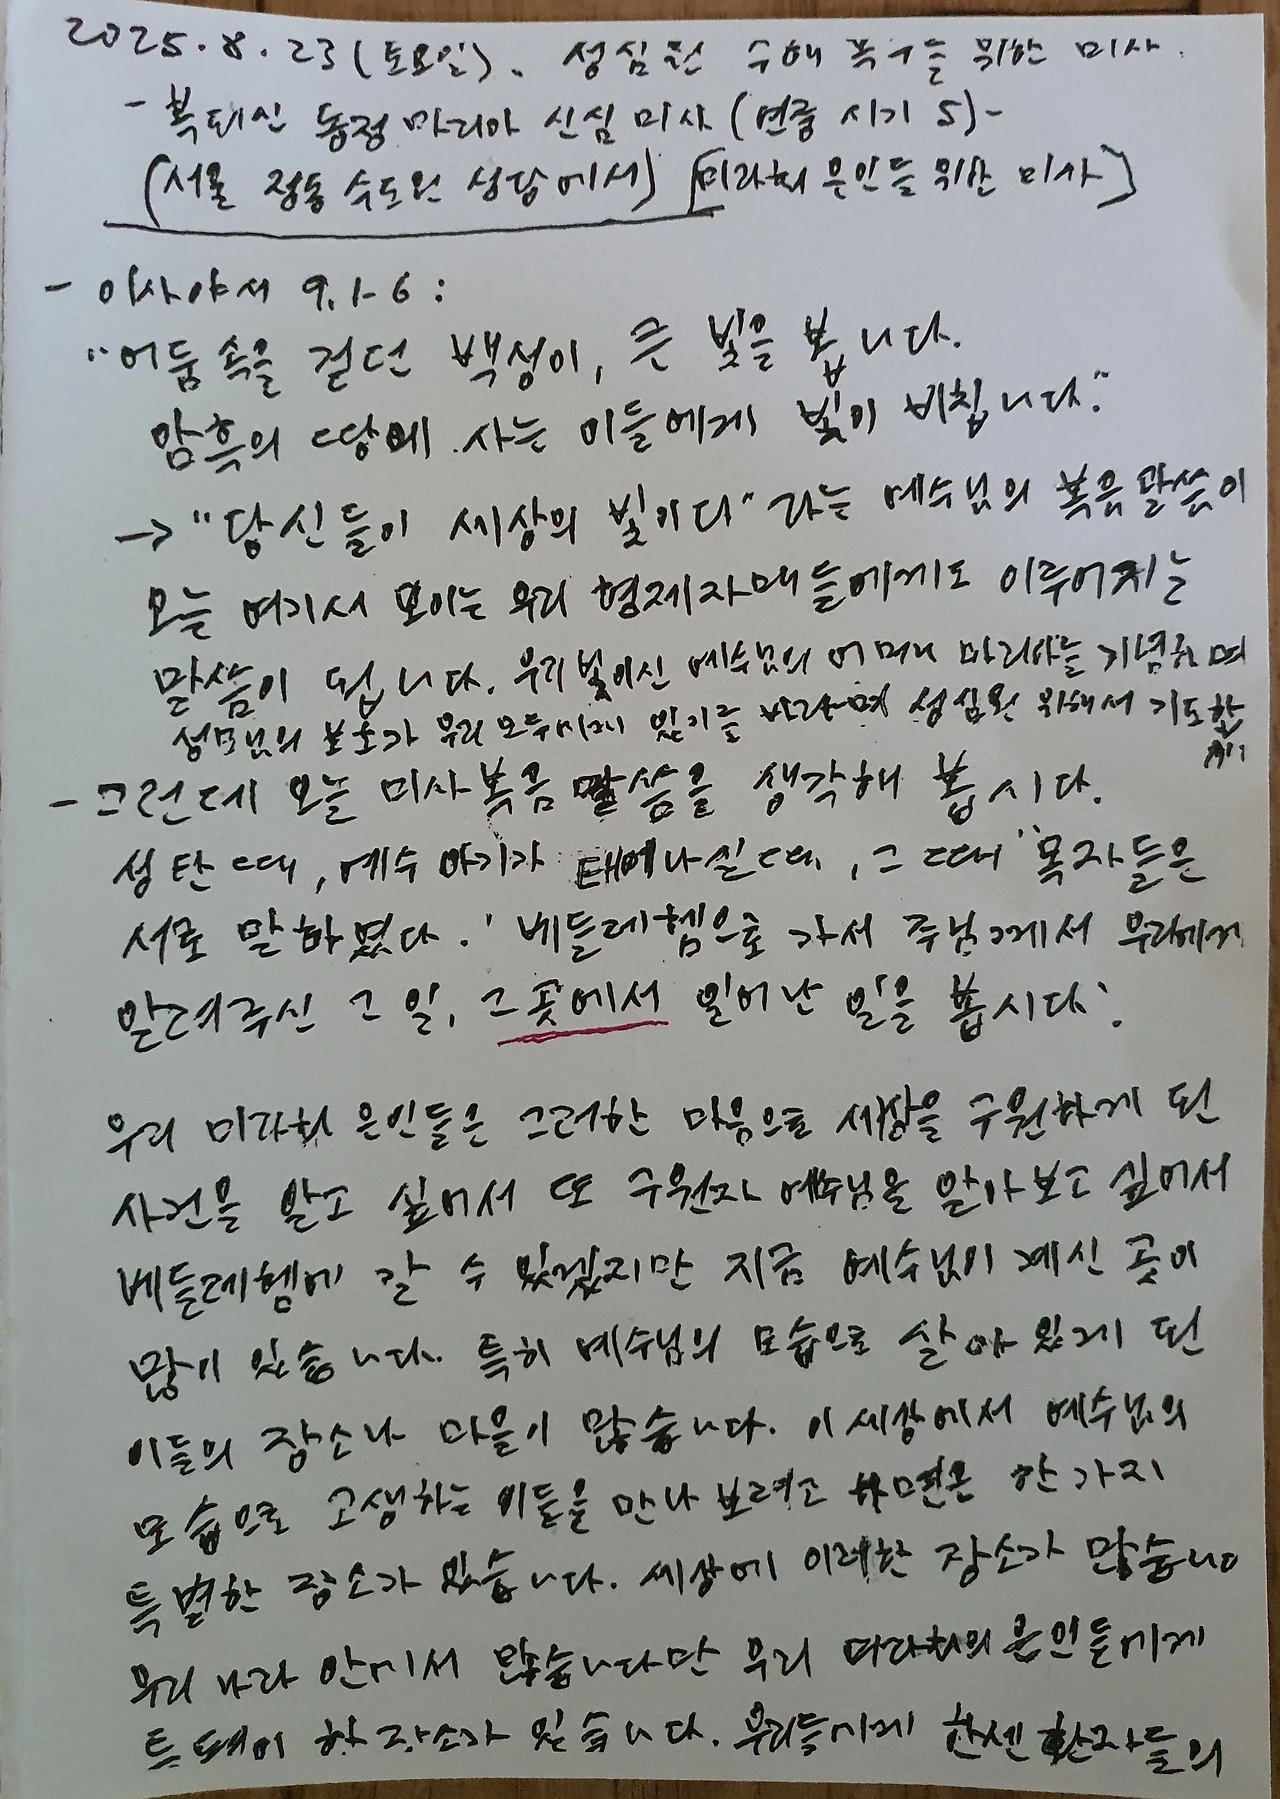 2025.8.23(토요일). 성심원 수해 복구를 위한 미사.
- 복되신 동정 마리아 신심 미사 (연중 시기 5)-
(서울 정동 수도원 성당에서) [미라회 은인들 위한 미사)
- 이사야서 9,1-6:
"어둠 속을 걷던 백성이, 큰 빛을 봅니다.
암흑의 땅에 사는 이들에게 빛이 비칩니다."
→ "당신들이 세상의 빛이다" 라는 예수님의 복음 말씀이
오늘 여기서 모이는 우리 형제자매들에게도 이루어지는
말씀이 됩니다. 우리 빛이신 예수님의 어머니 마리아를 기념하며
성모님의 보호가 우리 모두에게 있기를 바라며 성심원 위해서 기도합
시다
- 그런데 오늘 미사 복음 말씀을 생각해 봅시다.
성탄 때, 예수 아기가 태어나실 때, 그 때 "목자들은
서로 말하였다. '베들레헴으로 가서 주님께서 우리에게
알려주신 그 일, 그곳에서 일어난 일을 봅시다'.
우리 미라회 은인들은 그러한 마음으로 세상을 구원하게 된
사건을 알고 싶어서 또 구원자 예수님을 알아보고 싶어서
베들레헴에 갈 수 있겠지만 지금 예수님이 계신 곳이
많이 있습니다. 특히 예수님의 모습으로 살아 있게 된
이들의 장소나 마을이 많습니다. 이 세상에서 예수님의
모습으로 고생하는 이들을 만나 보려고 하면은 한 가지
특별한 장소가 있습니다. 세상에 이러한 장소가 많습니다
우리 나라 안에서 많습니다만 우리 미라회의 은인들에게
특별이 한 장소가 있습니다. 우리들에게 한센 환자들의